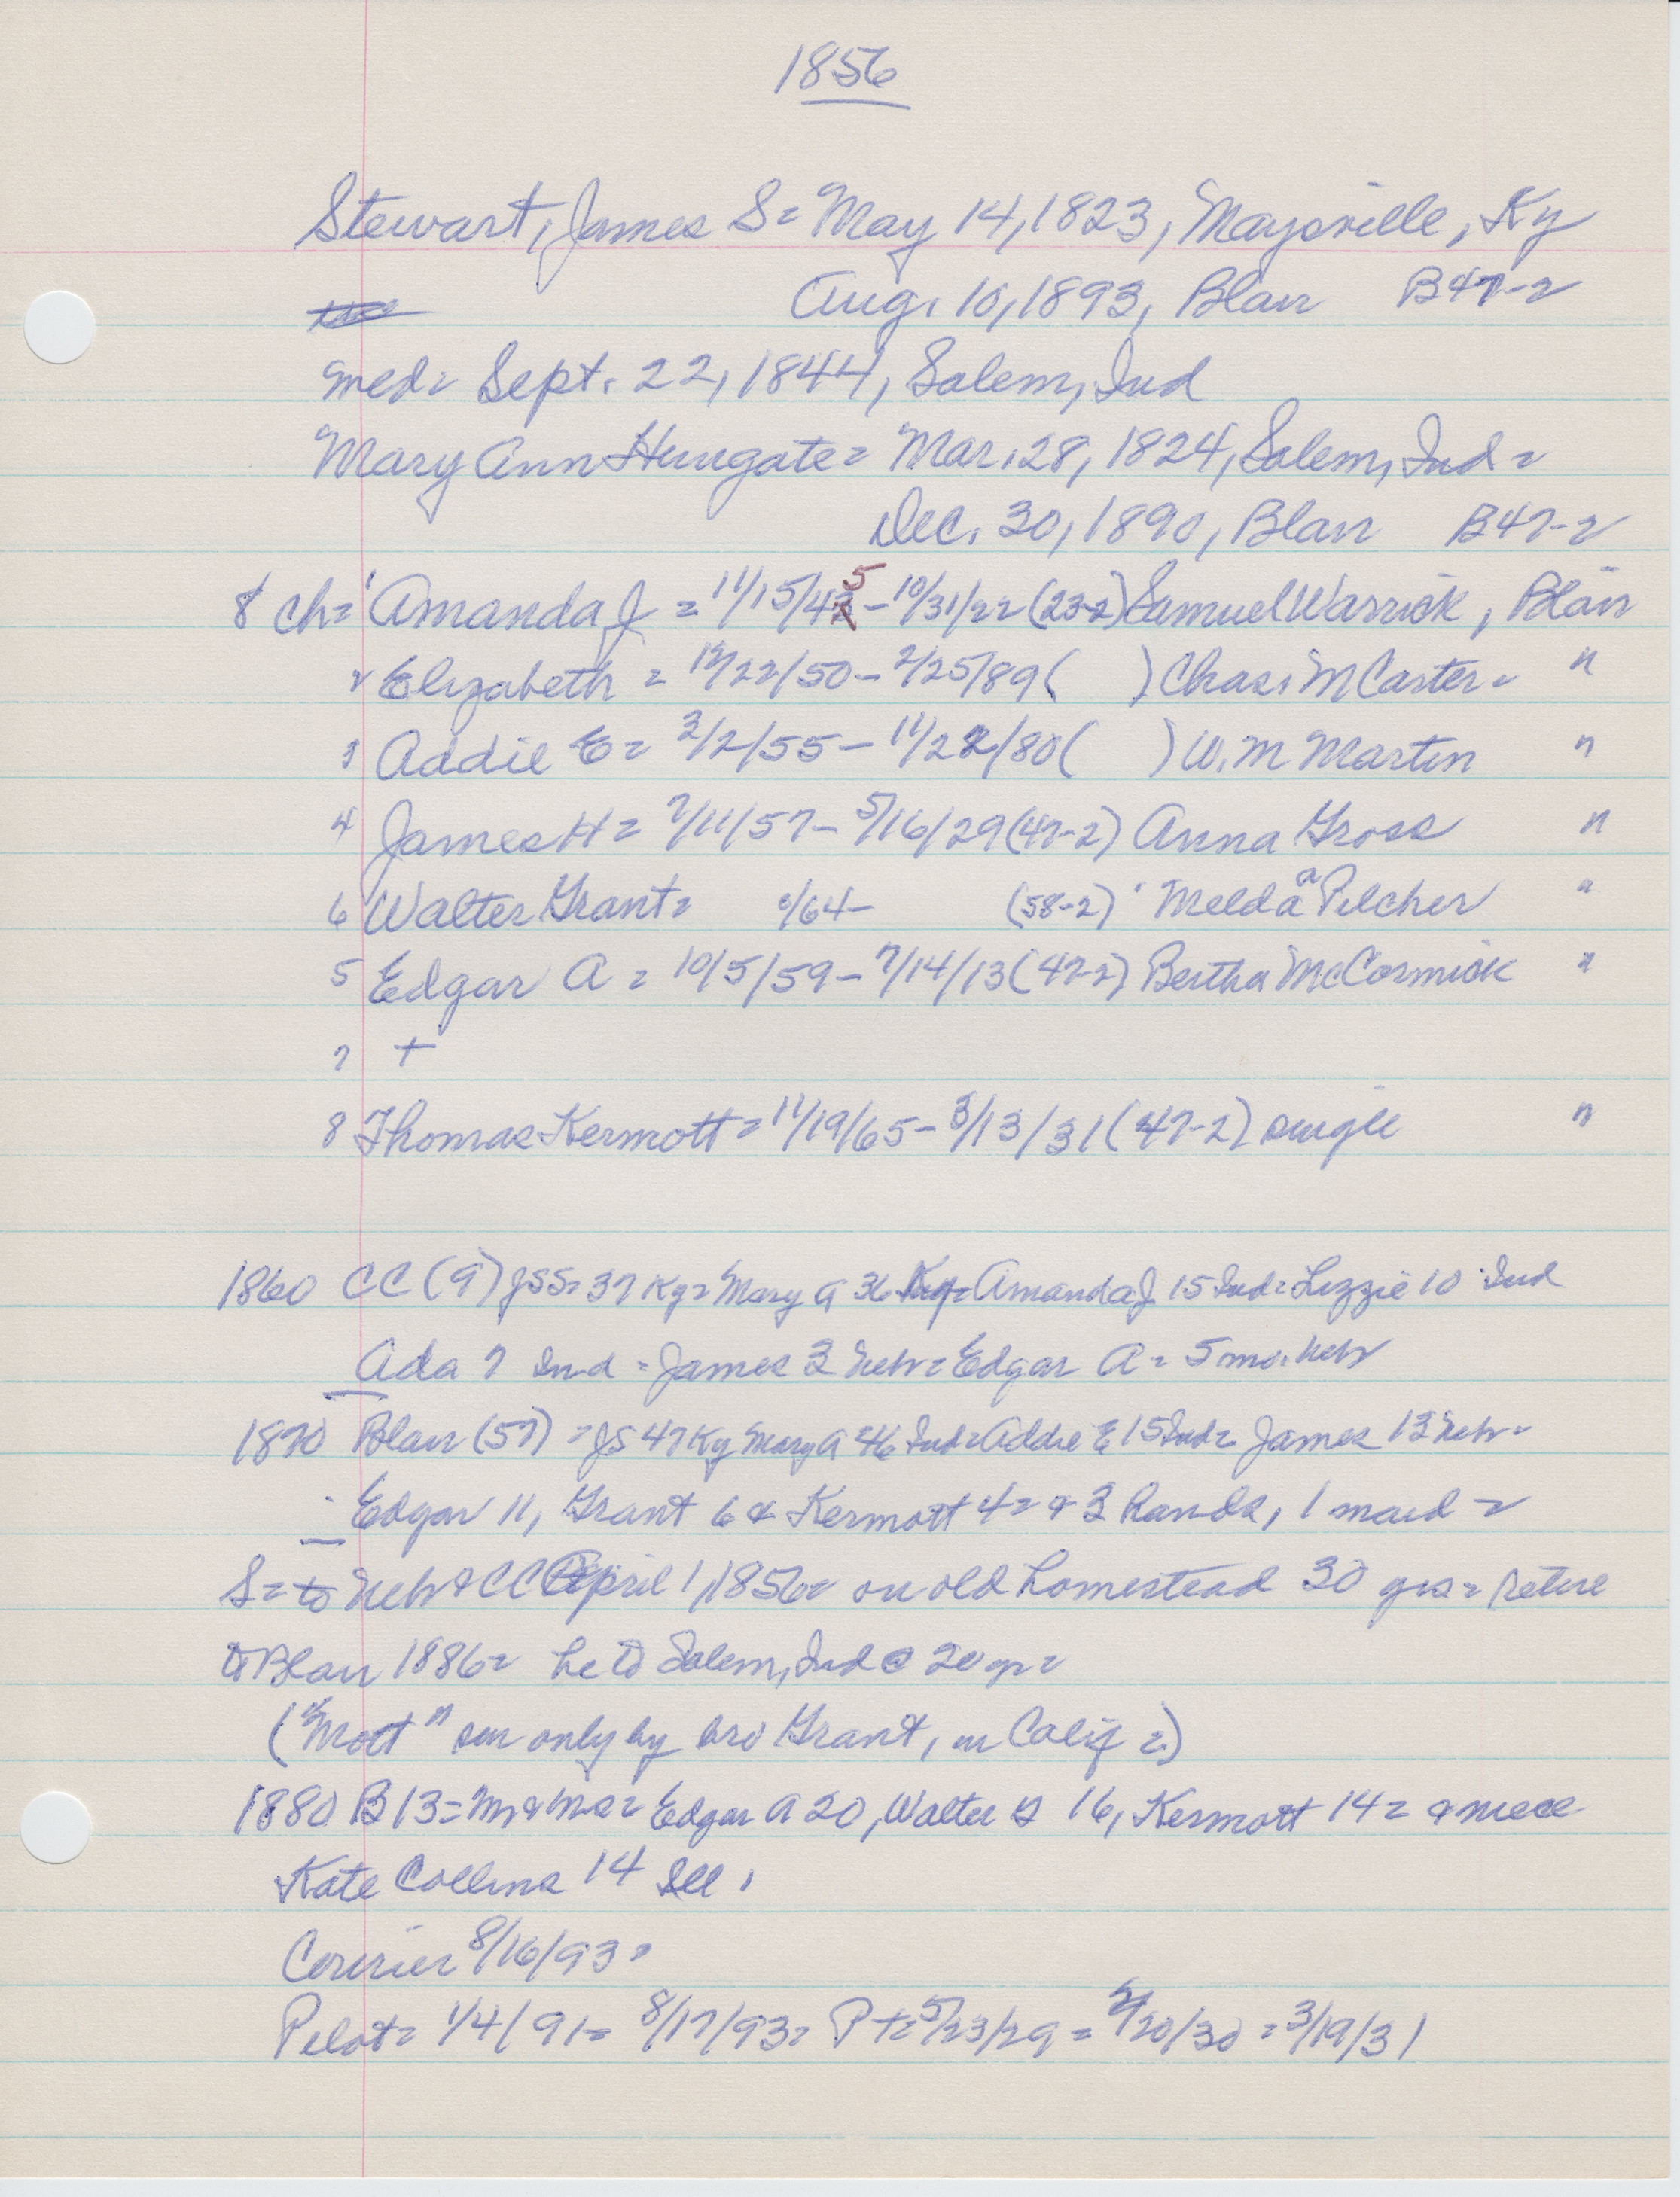 1856
Stewart, James S = May 14, 1823, Maysville, Ky
Aug. 10, 1893, Blair B47-2
med = Sept. 22, 1844, Salem, Ind
Mary Ann Hungate = Mar. 28, 1824, Salem, Ind =
Dec. 30, 1890, Blair B47-2
8 ch = 1 Amanda J = 11/15/45 - 10/31/22 (23-2) Samuel Warrick, Blair
2 Elizabeth = 12/22/50 - 2/25/89 ( ) Chas. M Carter = "
3 Addie E = 3/2/55 - 11/22/80 ( ) W. M Martin "
4 James H = 7/11/57 - 5/16/29 (47-2) Anna Gross "
6 Walter Grant = /64 - (58-2) Melda a Pilcher "
5 Edgar A = 10/5/59 - 7/14/13 (47-2) Bertha McCormick "
7 +
8 Thomas Kermott = 11/19/65 - 3/13/31 (47-2) single "
1860 CC (9) JSS = 37 Ky = Mary A 36 = Amanda J 15 Ind = Lizzie 10 Ind
Ada 7 Ind = James 3 Neb = Edgar A = 5 mo. Neb
1870 Blair (57) = JS 47 Ky Mary A 46 Ind = Addie E 15 Ind = James 13 Neb =
Edgar 11, Grant 6 & Kermott 4 = & 3 hands, 1 maid =
S = to Neb & CC April 1, 1856 = on old homestead 30 yrs = retire
to Blair 1886 = he to Salem, Ind @ 20 yr =
("Mott" sur only by bro Grant, in Calif =)
1880 B 13 = Mr & Mrs = Edgar A 20, Walter G 16, Kermott 14 = & niece
Kate Collins 14 Ill.
Courier 8/16/93 =
Pilot = 1/4/91 = 8/17/93 = P T = 5/23/29 = 2/20/30 = 3/19/31